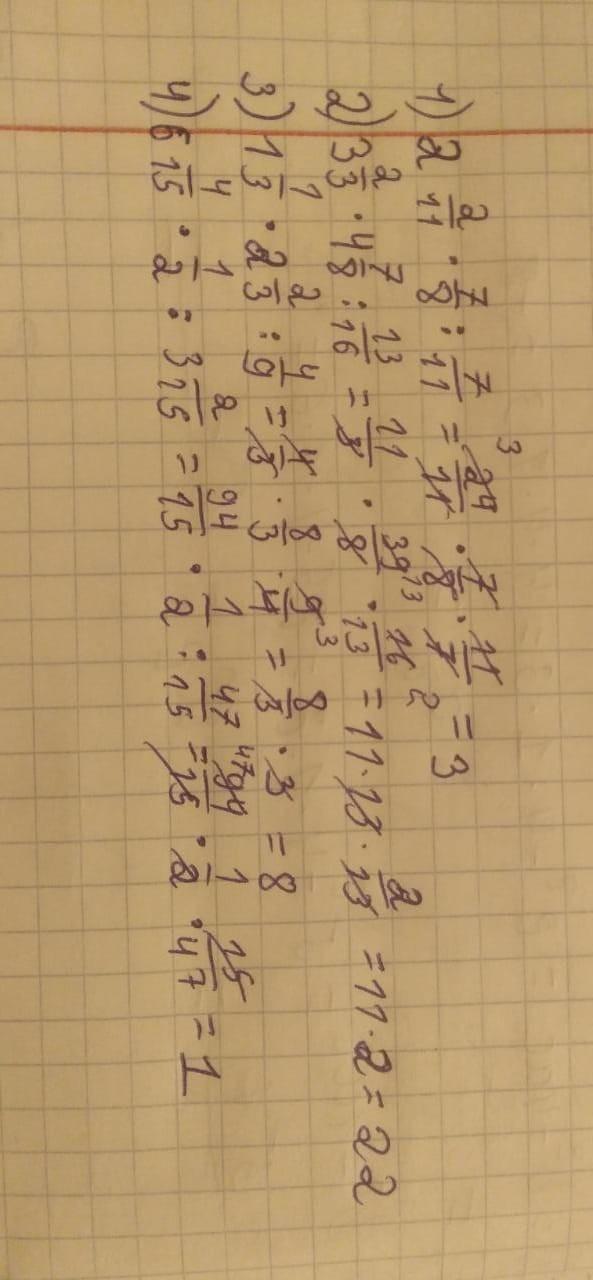 1) 2 2/11 · 7/8 : 7/11 = 24/11 3 · 7/8 · 11/7 = 3
2) 3 2/3 · 4 7/8 : 13/16 = 11/3 · 39/8 13 · 16/13 2 = 11 · 13 · 2/13 = 11 · 2 = 22
3) 1 1/3 · 2 2/3 : 4/9 = 4/3 · 8/3 · 9/4 3 = 8/3 · 3 = 8
4) 6 4/15 · 1/2 : 3 2/15 = 94/15 · 1/2 : 47/15 = 47 94/15 · 1/2 · 15/47 = 1